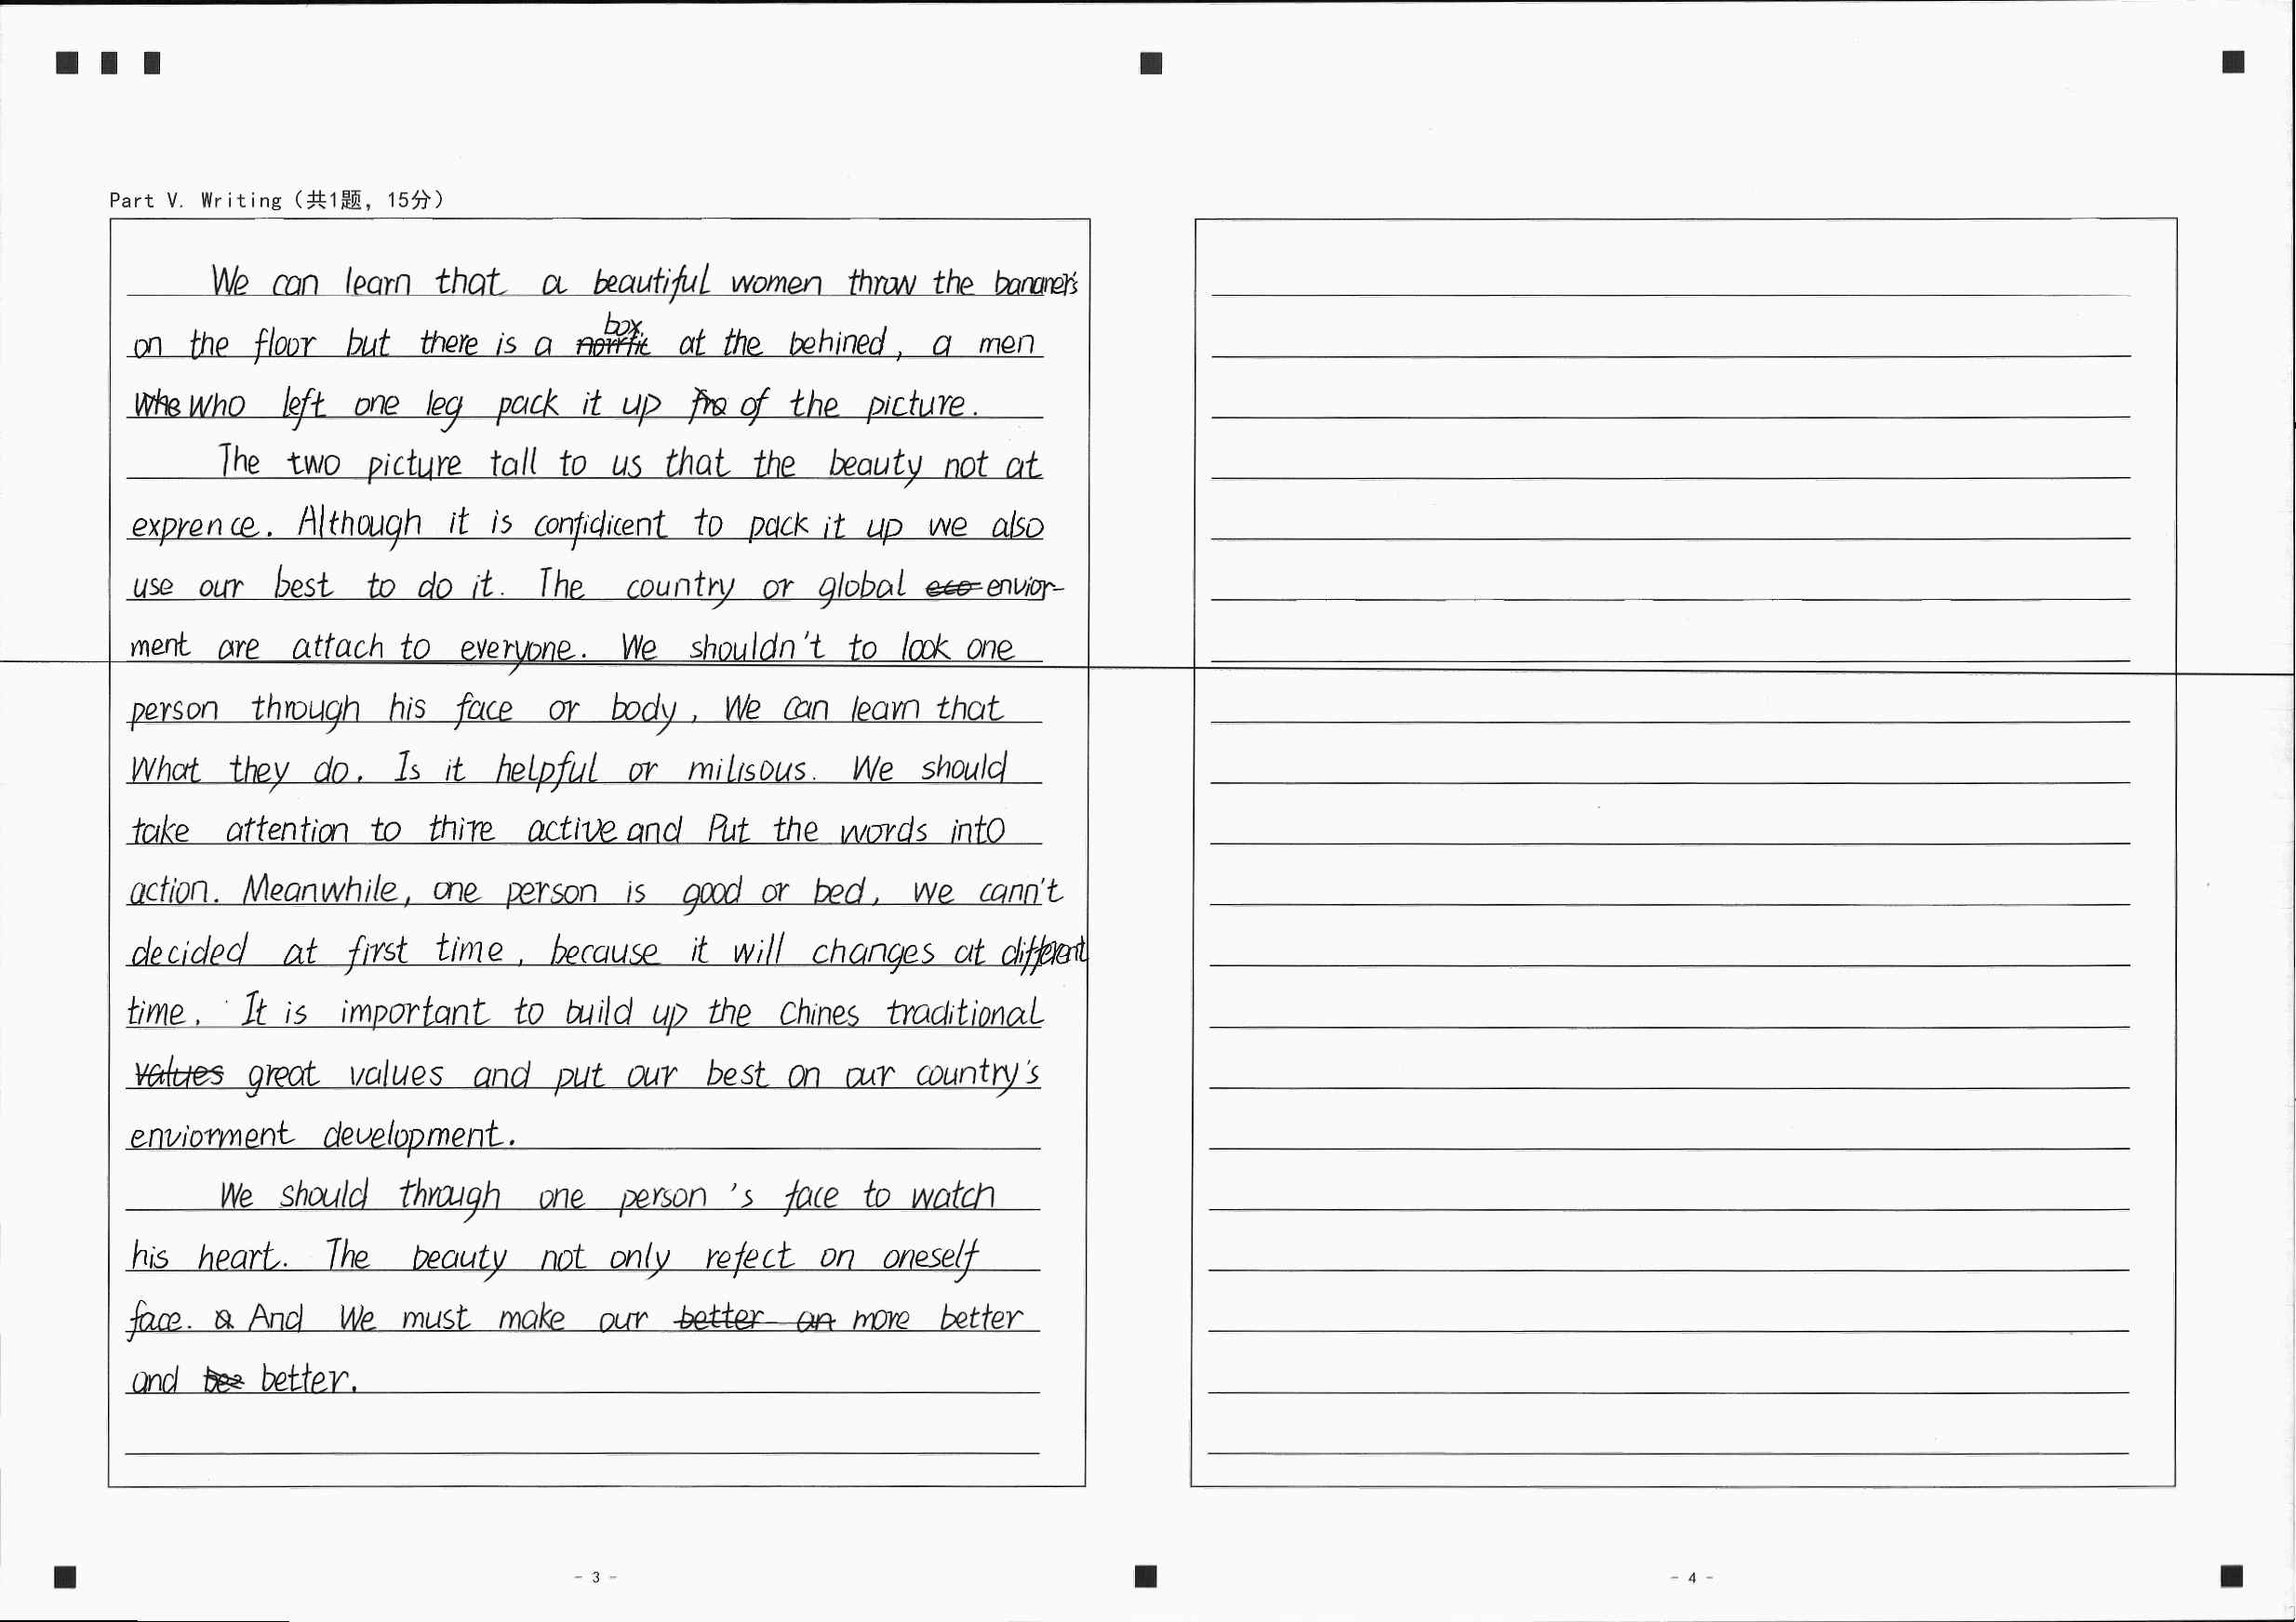 Part V. Writing（共1题，15分）
We can learn that a beautiful women throw the bananer's
on the floor but there is a box at the behined, a men
who left one leg pack it up of the picture.
The two picture tall to us that the beauty not at
exprence. Although it is confidicent to pack it up we also
use our best to do it. The country or global envior-
ment are attach to everyone. We shouldn't to look one
person through his face or body, We can learn that
What they do. Is it helpful or milisous. We should
take attention to thire active and Put the words into
action. Meanwhile, one person is good or bed, we cann't
decided at first time, because it will changes at different
time. It is important to build up the Chines traditional
great values and put our best on our country's
enviorment development.
We should through one person 's face to watch
his heart. The beauty not only refect on oneself
face. And We must make our more better
and better.
- 3 -
- 4 -